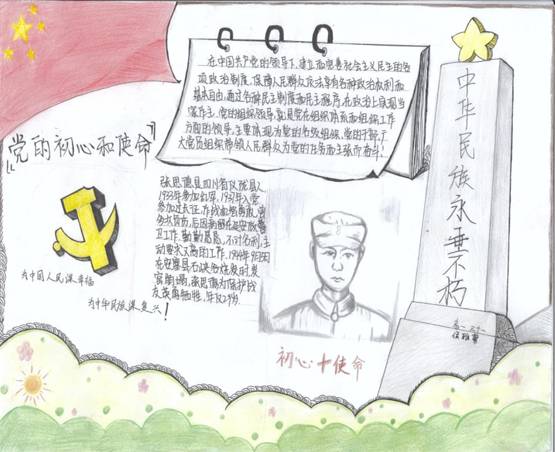 在中国共产党的领导下，建立和完善社会主义民主的各
项政治制度，保障人民群众依法享有各种政治权利和
基本自由，通过各种民主制度和民主程序，在政治上实现当
家作主。党的组织领导，就是党在组织体系和组织工作
方面的领导，主要体现为党的各级组织、党的干部、广
大党员组织带领人民群众为党的任务和主张而奋斗！
『党的初心和使命』
为中国人民谋幸福
为中华民族谋复兴！
张思德是四川省仪陇县人
1933年参加红军，1937年入党
参加过长征，作战
工作，勤勤恳恳，不计名利，主
在安塞县石峡峪烧炭时炭
窑崩塌，张思德为保护战
友英勇牺牲，年仅29岁。
初心十使命
中华民族永垂不朽